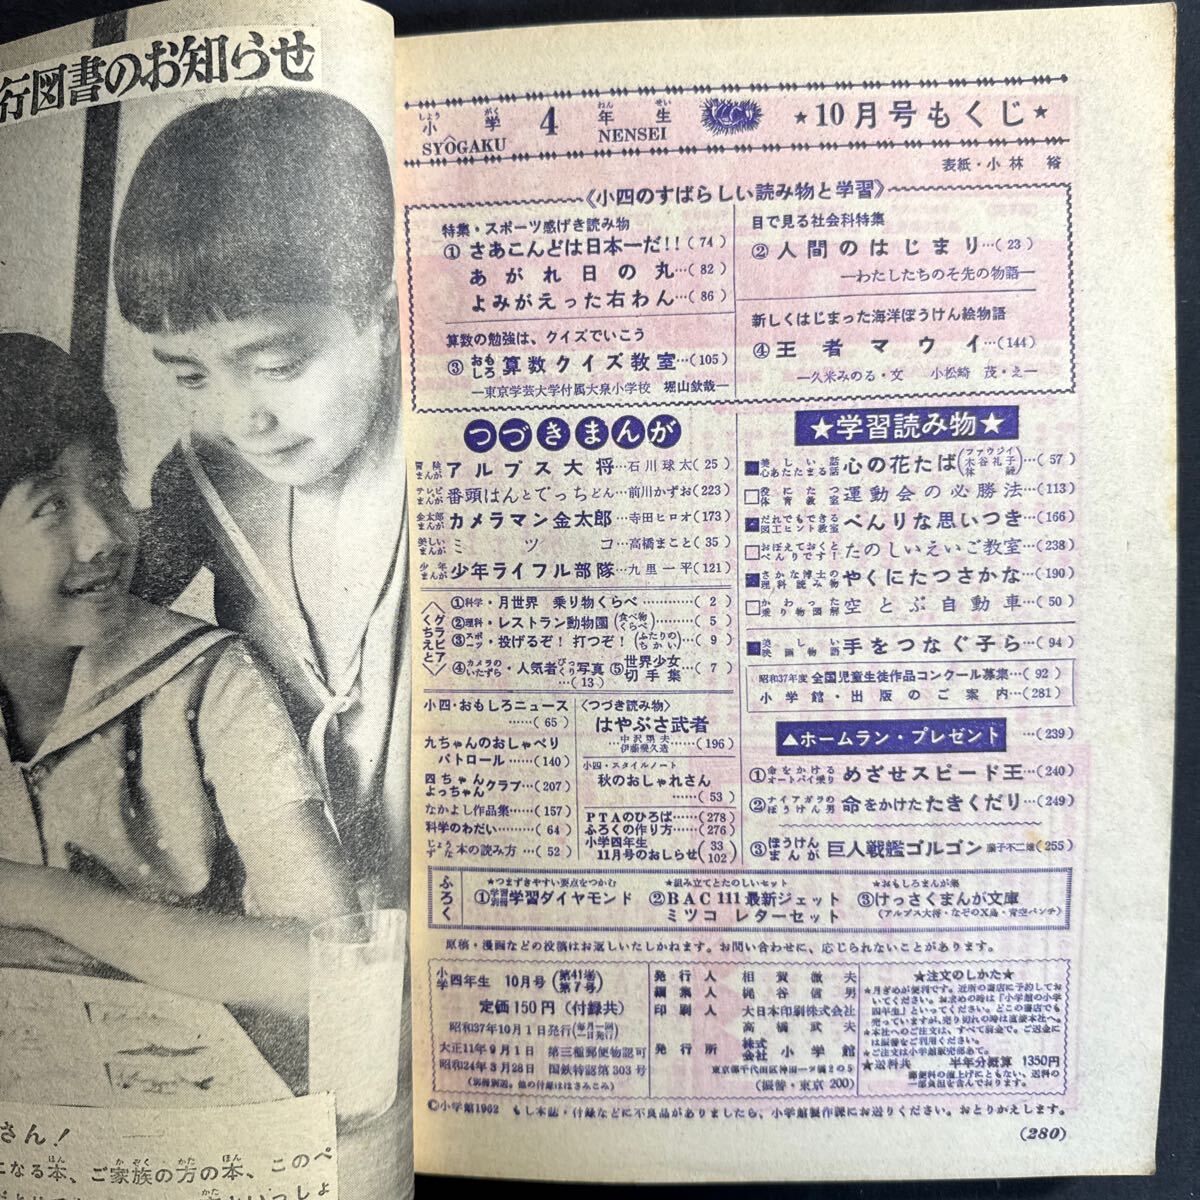 行図書のお知らせ
さん!
になる本、ご家族の方の本、このペ
小学4年生
SYŌGAKU NENSEI
★10月号もくじ★
表紙・小林 裕
《小四のすばらしい読み物と学習》
特集・スポーツ感げき読み物
①さあこんどは日本一だ!!…(74)
あがれ日の丸…(82)
よみがえった右わん…(86)
目で見る社会科特集
②人間のはじまり…(23)
―わたしたちのそ先の物語―
算数の勉強は、クイズでいこう
③おもしろ算数クイズ教室…(105)
―東京学芸大学付属大泉小学校 堀山欽哉―
新しくはじまった海洋ぼうけん絵物語
④王者マウイ…(144)
―久米みのる・文 小松崎 茂・え―
つづきまんが
冒険まんが アルプス大将…石川球太(25)
テレビまんが 番頭はんとでっちどん…前川かずお(223)
金太郎まんが カメラマン金太郎…寺田ヒロオ(173)
美しいまんが ミツコ…高橋まこと(35)
少年まんが 少年ライフル部隊…九里一平(121)
くちえとグラビア
①科学・月世界 乗り物くらべ…………(2)
②理科・レストラン動物園(食べ物くらべ)……(5)
③スポーツ・投げるぞ!打つぞ!(ふたりのちかい)…(9)
④カメラのいたずら・人気者びっくり写真…(13)
⑤世界少女切手集…(7)
小四・おもしろニュース……(65)
九ちゃんのおしゃべりパトロール……(140)
四ちゃんよっちゃんクラブ…(207)
なかよし作品集……(157)
科学のわだい………(64)
じょうずな本の読み方…(52)
〈つづき読み物〉
はやぶさ武者
…(196)
小四・スタイルノート
秋のおしゃれさん
……(53)
PTAのひろば……(278)
ふろくの作り方……(276)
小学四年生11月号のおしらせ(33 102)
★学習読み物★
美しい話心あたたまる話 心の花たば…(57)
役にたつ体育教室 運動会の必勝法…(113)
だれでもできる図工ヒント教室 べんりな思いつき…(166)
おぼえておくとべんりです! たのしいえいご教室…(238)
さかな博士の理科読み物 やくにたつさかな…(190)
かわった乗り物図解 空とぶ自動車…(50)
美しい映画物語 手をつなぐ子ら…(94)
昭和37年度 全国児童生徒作品コンクール募集…(92)
小学館・出版のご案内…(281)
▲ホームラン・プレゼント …(239)
①命をかけるオートバイ乗り めざせスピード王…(240)
②ナイアガラのぼうけん男 命をかけたたきくだり…(249)
③ぼうけんまんが 巨人戦艦ゴルゴン 藤子不二雄(255)
ふろく
★つまずきやすい要点をつかむ
①学習別冊学習ダイヤモンド
★組み立てとたのしいセット
②BAC111最新ジェット
ミツコ レターセット
★おもしろまんが集
③けっさくまんが文庫
(アルプス大将・なぞのX島・青空パンチ)
原稿・漫画などの投稿はお返しいたしかねます。お問い合わせに、応じられないことがあります。
小学四年生 10月号(第41巻第7号)
定価150円(付録共)
昭和37年10月1日発行(毎月一回一日発行)
大正11年9月1日 第三種郵便物認可
昭和24年3月28日 国鉄特認第303号
発行人 相賀徹夫
編集人 梶谷信男
印刷人 大日本印刷株式会社
高橋武夫
発行所 株式会社 小学館
東京都千代田区神田一ツ橋2の5
(振替・東京200)
★注文のしかた★
★月ぎめが便利です。近所の書店に予約しておいてください。お求めの時は「小学館の小学四年生」といってください。どこの書店でも売っていますが、売り切れの時は直接本社へ。
★本社へのご注文は、すべて前金で。ご送金には振替をご利用ください。
★ご注文は小学館販売部あて。
★送料共 半年分概算 1350円
郵便料の値上げにともない、送料の一部負担を含んでおります。
©小学館1962 もし本誌・付録などに不良品がありましたら、小学館製作課にお送りください。おとりかえします。
(280)